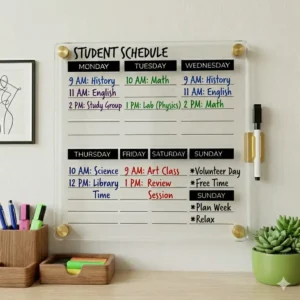 STUDENT SCHEDULE
MONDAY TUESDAY WEDNESDAY
9 AM: History 10 AM: Math 9 AM: History
11 AM: English 11 AM: English
2 PM: Study Group 1 PM: Lab (Physics) 2 PM: Math
THURSDAY FRIDAY SATURDAY SUNDAY
10 AM: Science 9 AM: Art Class *Volunteer Day
12 PM: Library 1 PM: Review *Free Time
Time Session SUNDAY
*Plan Week
*Relax